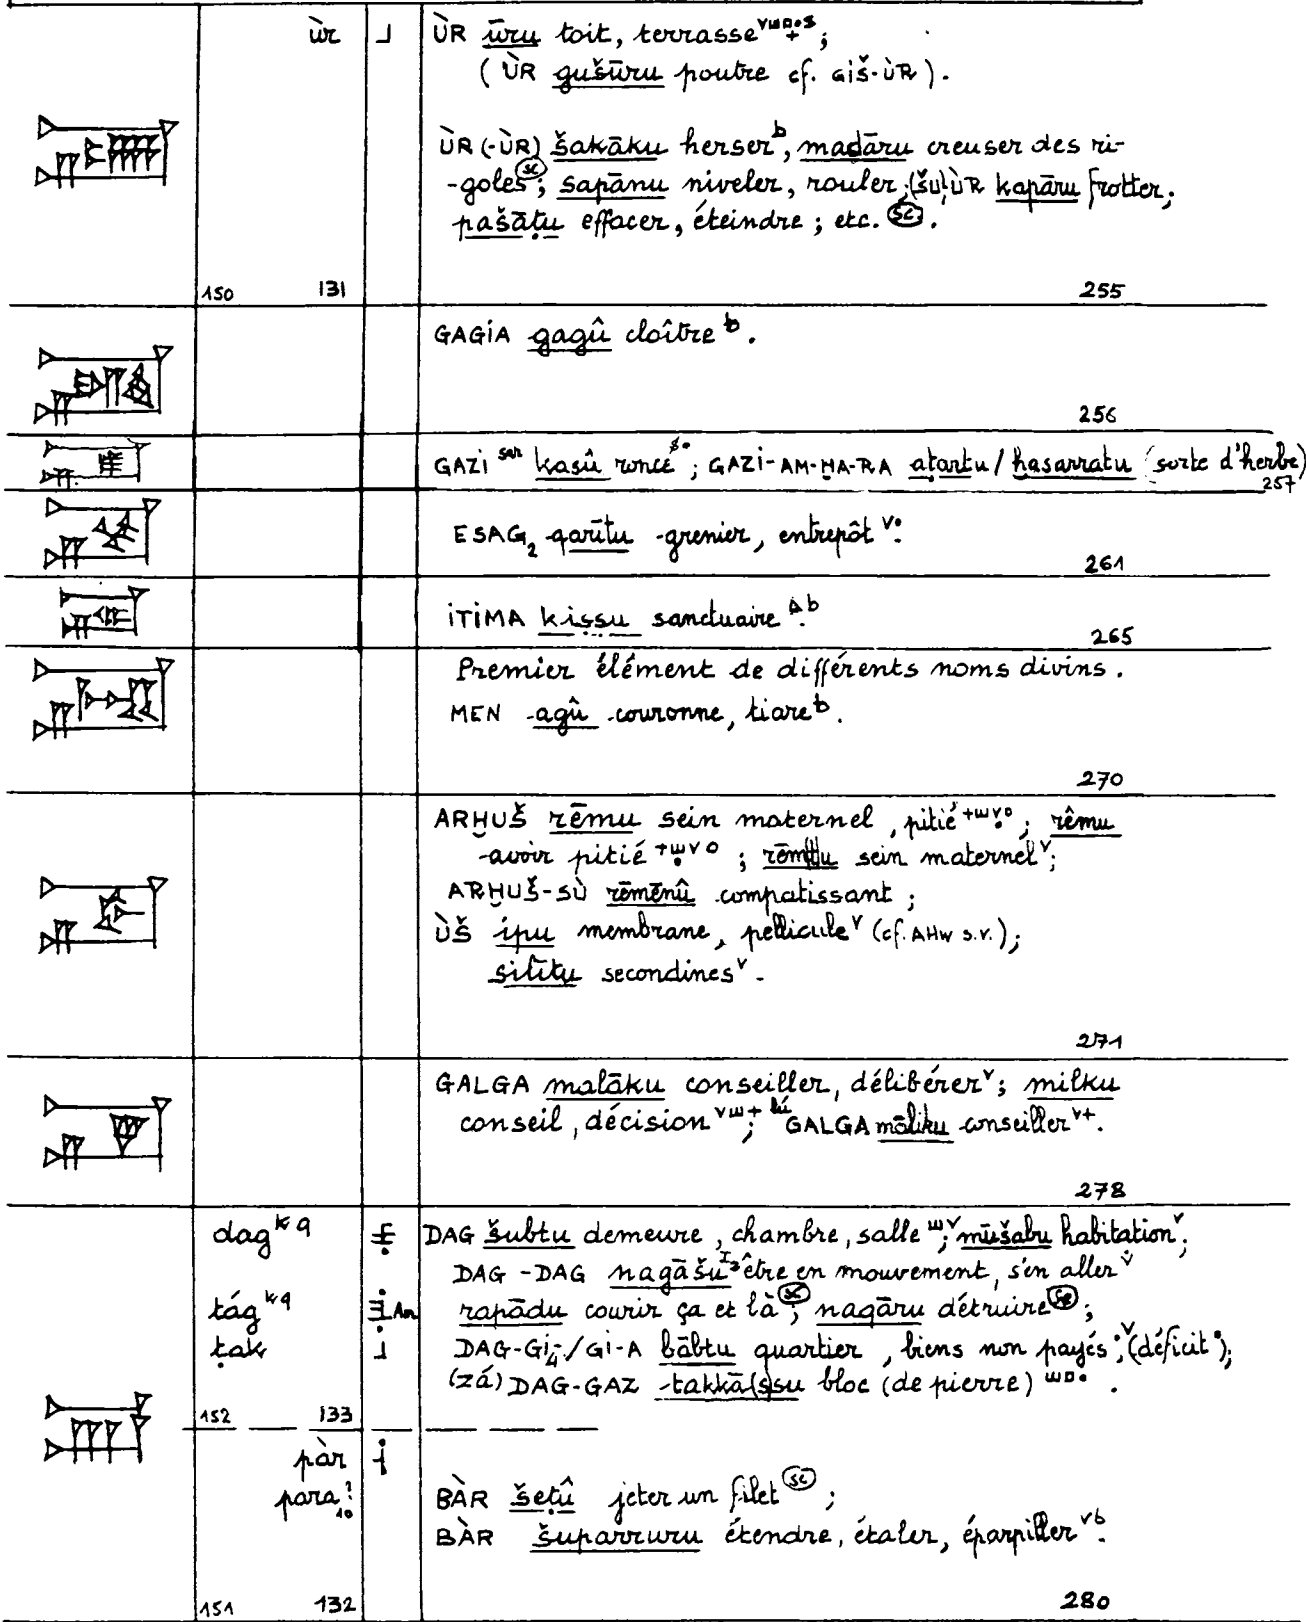 ùr ⅃ ÙR ūru toit, terrasse ;
(ÙR gušūru poutre cf. GIŠ-ÙR).
ÙR (-ÙR) šakāku herser b, madāru creuser des ri-
-goles (sc) ; sapānu niveler, rouler ; (šu) ÙR kapāru frotter ;
pašāṭu effacer, éteindre ; etc. (sc).
150 131 255
GAGIA gagû cloître b.
256
GAZI sar kasû ronce š• ; GAZI-AM-ḪA-RA aṭarṭu / ḫasarratu (sorte d'herbe)
257
ESAG₂ qarītu grenier, entrepôt v•.
261
ITIMA kiṣṣu sanctuaire b.
265
Premier élément de différents noms divins.
MEN agû couronne, tiare b.
270
ARḪUŠ rēmu sein maternel, pitié ; rêmu
avoir pitié ; rēmtu sein maternel v ;
ARḪUŠ-SÙ rēmēnû compatissant ;
ÙŠ ipu membrane, pellicule v (cf. AHw s.v.) ;
silītu secondines v.
271
GALGA malāku conseiller, délibérer v ; milku
conseil, décision vш+ ; lú GALGA māliku conseiller v+.
278
dag k q DAG šubtu demeure, chambre, salle ш v ; mūšabu habitation v ;
DAG-DAG nagāšu I₃ être en mouvement, s'en aller v
tág k q rapādu courir ça et là (sc) ; naqāru détruire (sc) ;
ṭak ⅃ DAG-GI₄-/GI-A bābtu quartier, biens non payés v ; (déficit •) ;
(zá) DAG-GAZ takkas/ṣsu bloc (de pierre) .
152 133
pàr
para₁₀? BÀR šeṭû jeter un filet (sc) ;
BÀR šuparruru étendre, étaler, éparpiller vb.
151 132 280